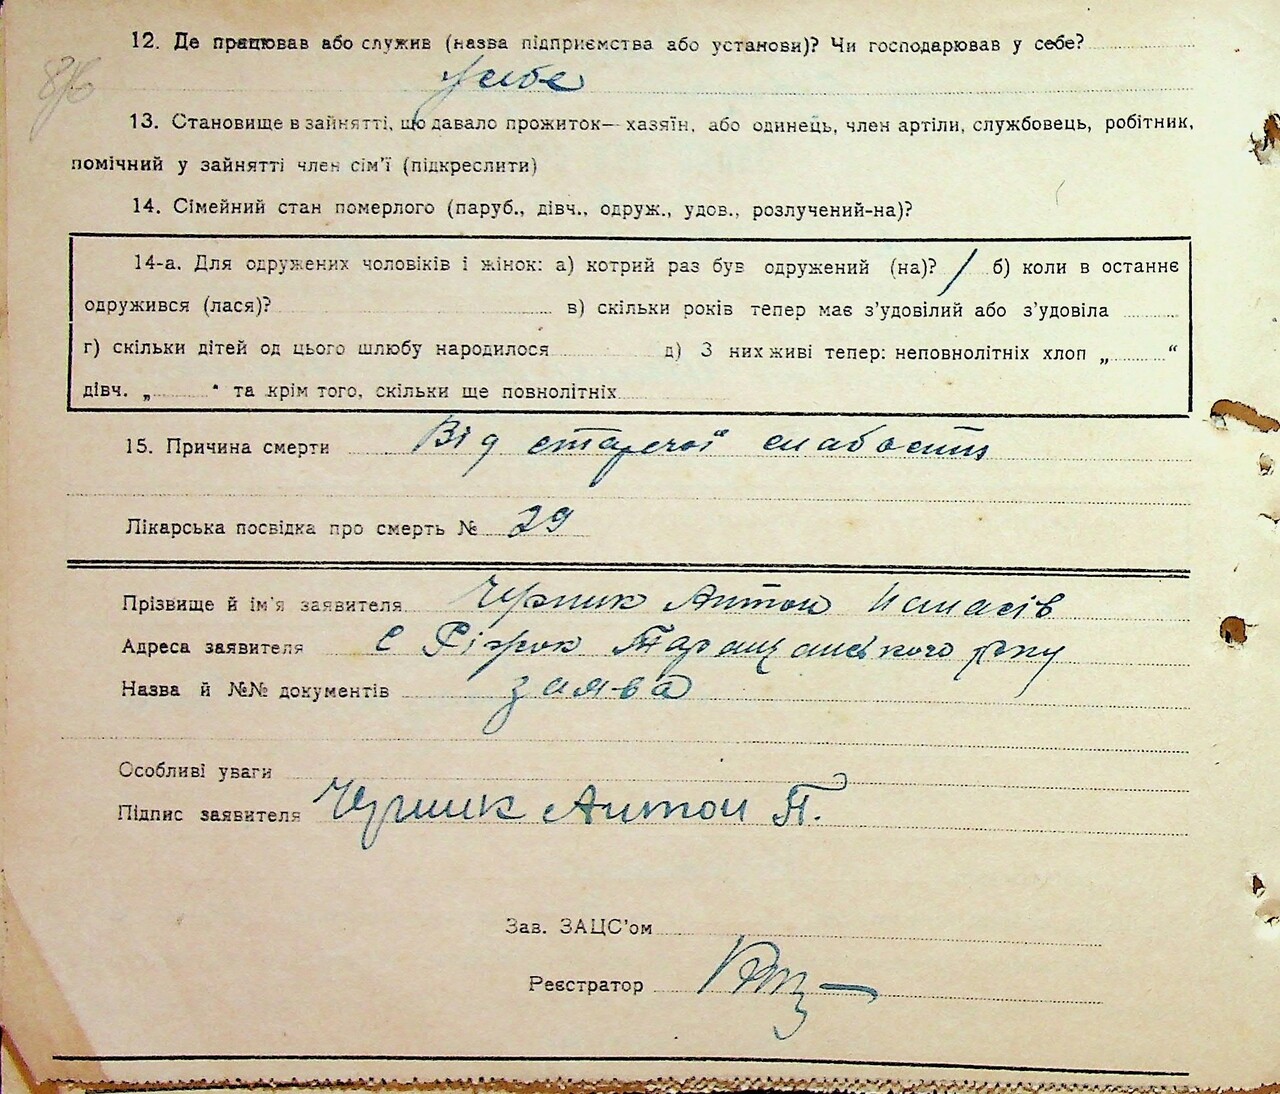 12. Де працював або служив (назва підприємства або установи)? Чи господарював у себе?
У себе
86
13. Становище в зайнятті, що давало прожиток — хазяїн, або одинець, член артіли, службовець, робітник,
помічний у зайнятті член сім'ї (підкреслити)
14. Сімейний стан померлого (паруб., дівч., одруж., удов., розлучений-на)?
14-а. Для одружених чоловіків і жінок: а) котрий раз був одружений (на)? / б) коли в останнє
одружився (лася)? в) скільки років тепер має з'удовілий або з'удовіла
г) скільки дітей од цього шлюбу народилося д) З них живі тепер: неповнолітніх хлоп „ “
дівч. „ “ та крім того, скільки ще повнолітніх
15. Причина смерти Від старечої слабости
Лікарська посвідка про смерть № 29
Прізвище й ім'я заявителя Черник Антон
Адреса заявителя С Ріжок Таращанського р-ну
Назва й №№ документів заява
Особливі уваги
Підпис заявителя Черник Антон П.
Зав. ЗАЦС'ом
Реєстратор